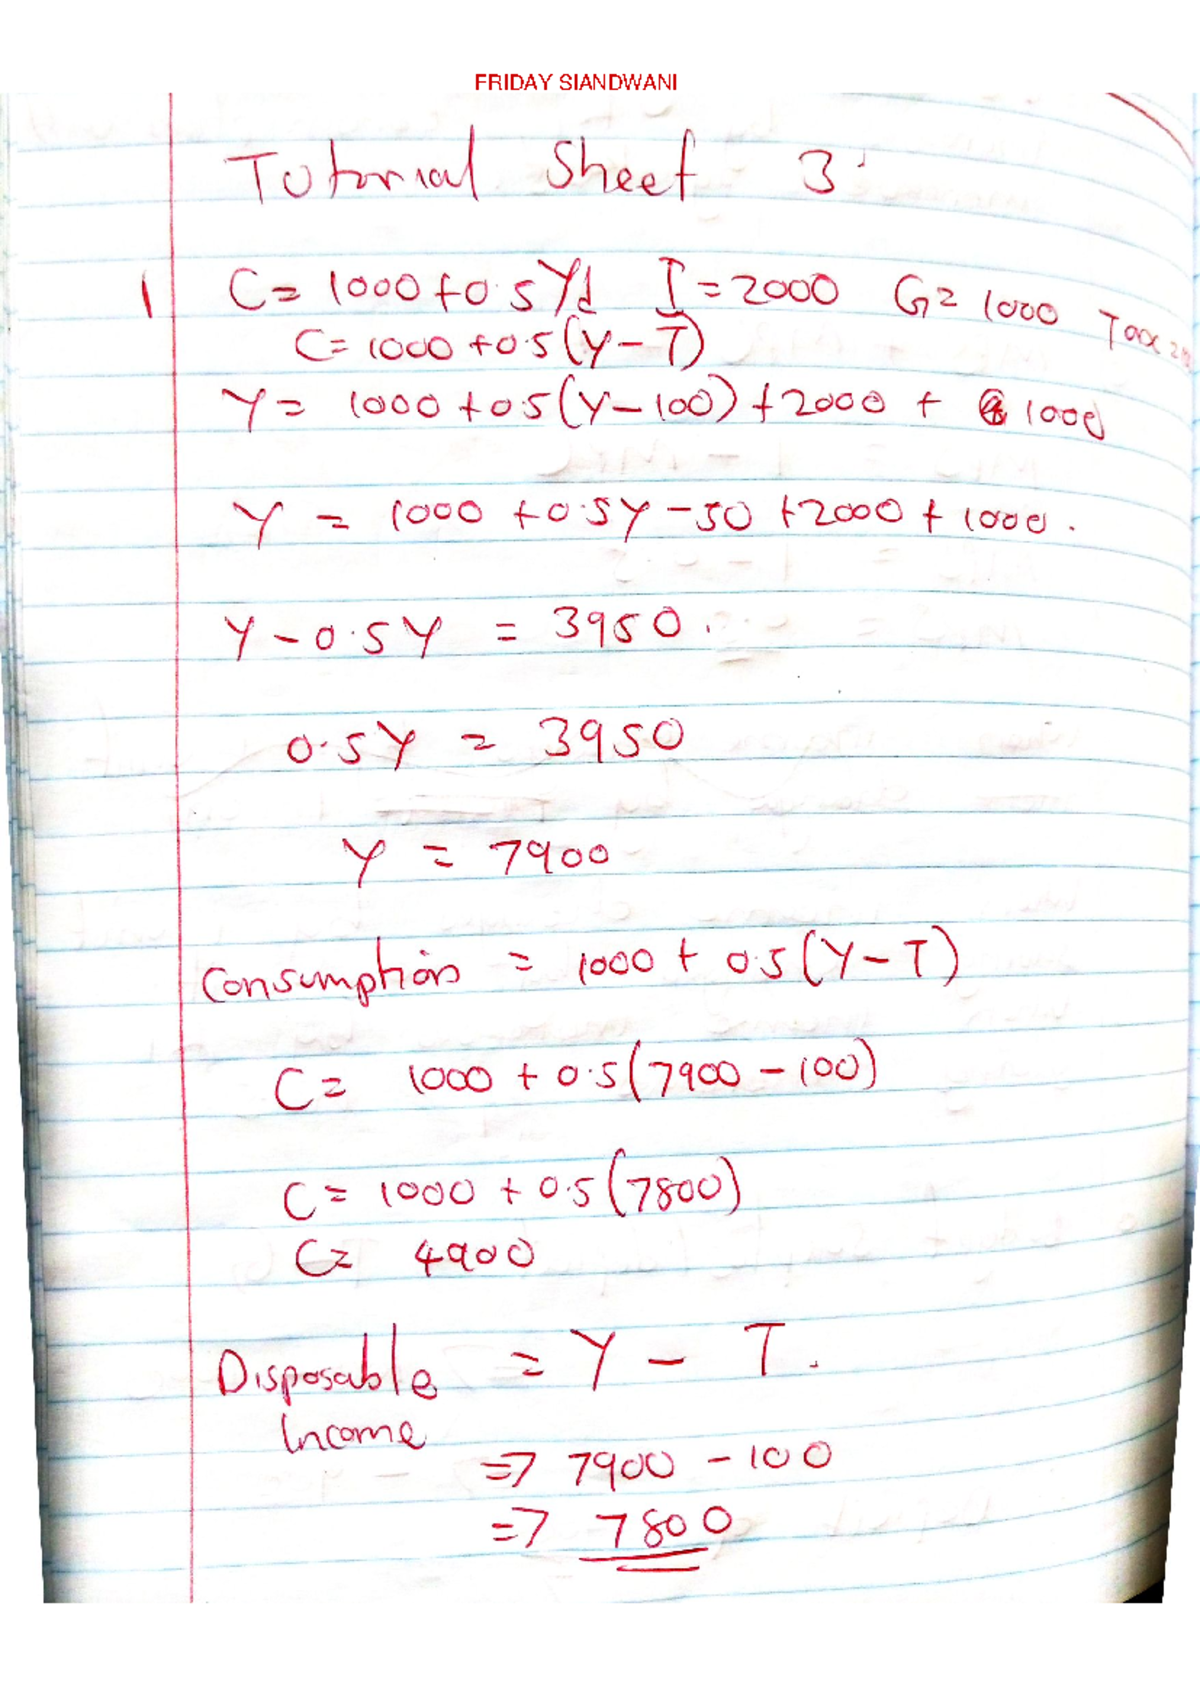 FRIDAY SIANDWANI
Tutorial Sheet 3
1 C= 1000+0.5Yd I=2000 G= 1000 Tax=
C= 1000+0.5(Y-T)
Y= 1000+0.5(Y-100)+2000 + 1000
Y = 1000 +0.5Y -50 +2000 + 1000.
Y-0.5Y = 3950.
0.5Y = 3950
Y = 7900
Consumption = 1000 + 0.5(Y-T)
C= 1000 + 0.5(7900 - 100)
C= 1000 + 0.5(7800)
C= 4900
Disposable = Y - T.
Income
=> 7900 - 100
=> 7800